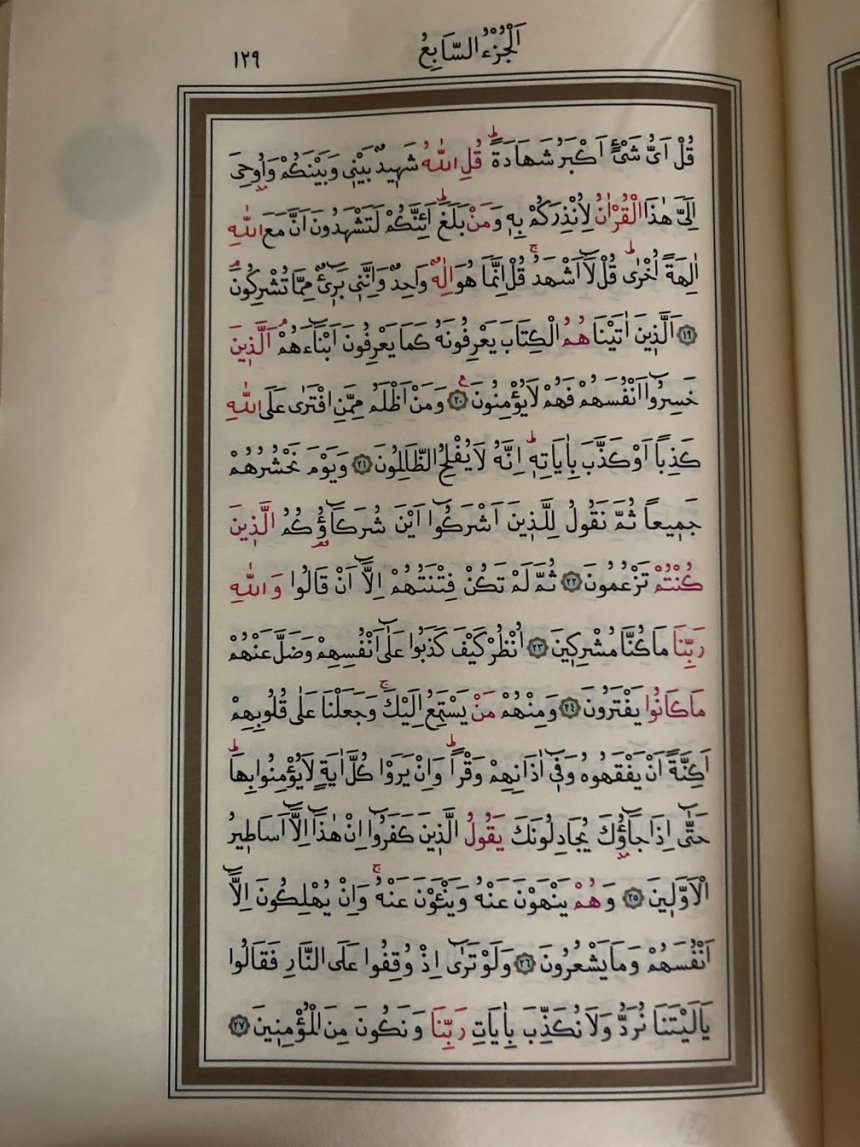 اَلْجُزْءُ السَّابِعُ
١٢٩
قُلْ اَىُّ شَىْءٍ اَكْبَرُ شَهَادَةًۜ قُلِ اللّٰهُ شَهٖيدٌ بَيْنٖى وَبَيْنَكُمْ وَاُوحِىَ
اِلَىَّ هٰذَا الْقُرْاٰنُ لِاُنْذِرَكُمْ بِهٖ وَمَنْ بَلَغَۜ اَئِنَّكُمْ لَتَشْهَدُونَ اَنَّ مَعَ اللّٰهِ
اٰلِهَةً اُخْرٰىۜ قُلْ لَٓا اَشْهَدُۚ قُلْ اِنَّمَا هُوَ اِلٰهٌ وَاحِدٌ وَاِنَّنٖى بَرٖٓىءٌ مِمَّا تُشْرِكُونَۘ
﴿١٩﴾ اَلَّذٖينَ اٰتَيْنَاهُمُ الْكِتَابَ يَعْرِفُونَهُ كَمَا يَعْرِفُونَ اَبْنَٓاءَهُمْۘ اَلَّذٖينَ
خَسِرُٓوا اَنْفُسَهُمْ فَهُمْ لَا يُؤْمِنُونَࣖ ﴿٢٠﴾ وَمَنْ اَظْلَمُ مِمَّنِ افْتَرٰى عَلَى اللّٰهِ
كَذِباً اَوْ كَذَّبَ بِاٰيَاتِهٖۜ اِنَّهُ لَا يُفْلِحُ الظَّالِمُونَ ﴿٢١﴾ وَيَوْمَ نَحْشُرُهُمْ
جَمٖيعاً ثُمَّ نَقُولُ لِلَّذٖينَ اَشْرَكُٓوا اَيْنَ شُرَكَٓاؤُ۬كُمُ الَّذٖينَ
كُنْتُمْ تَزْعُمُونَ ﴿٢٢﴾ ثُمَّ لَمْ تَكُنْ فِتْنَتُهُمْ اِلَّٓا اَنْ قَالُوا وَاللّٰهِ
رَبِّنَا مَا كُنَّا مُشْرِكٖينَ ﴿٢٣﴾ اُنْظُرْ كَيْفَ كَذَبُوا عَلٰٓى اَنْفُسِهِمْ وَضَلَّ عَنْهُمْ
مَا كَانُوا يَفْتَرُونَ ﴿٢٤﴾ وَمِنْهُمْ مَنْ يَسْتَمِعُ اِلَيْكَۚ وَجَعَلْنَا عَلٰى قُلُوبِهِمْ
اَكِنَّةً اَنْ يَفْقَهُوهُ وَفٖٓى اٰذَانِهِمْ وَقْراًۜ وَاِنْ يَرَوْا كُلَّ اٰيَةٍ لَا يُؤْمِنُوا بِهَاۜ
حَتّٰٓى اِذَا جَٓاؤُ۫كَ يُجَادِلُونَكَ يَقُولُ الَّذٖينَ كَفَرُٓوا اِنْ هٰذَٓا اِلَّٓا اَسَاطٖيرُ
الْاَوَّلٖينَ ﴿٢٥﴾ وَهُمْ يَنْهَوْنَ عَنْهُ وَيَنْـَٔوْنَ عَنْهُۚ وَاِنْ يُهْلِكُونَ اِلَّٓا
اَنْفُسَهُمْ وَمَا يَشْعُرُونَ ﴿٢٦﴾ وَلَوْ تَرٰٓى اِذْ وُقِفُوا عَلَى النَّارِ فَقَالُوا
يَا لَيْتَنَا نُرَدُّ وَلَا نُكَذِّبَ بِاٰيَاتِ رَبِّنَا وَنَكُونَ مِنَ الْمُؤْمِنٖينَ ﴿٢٧﴾